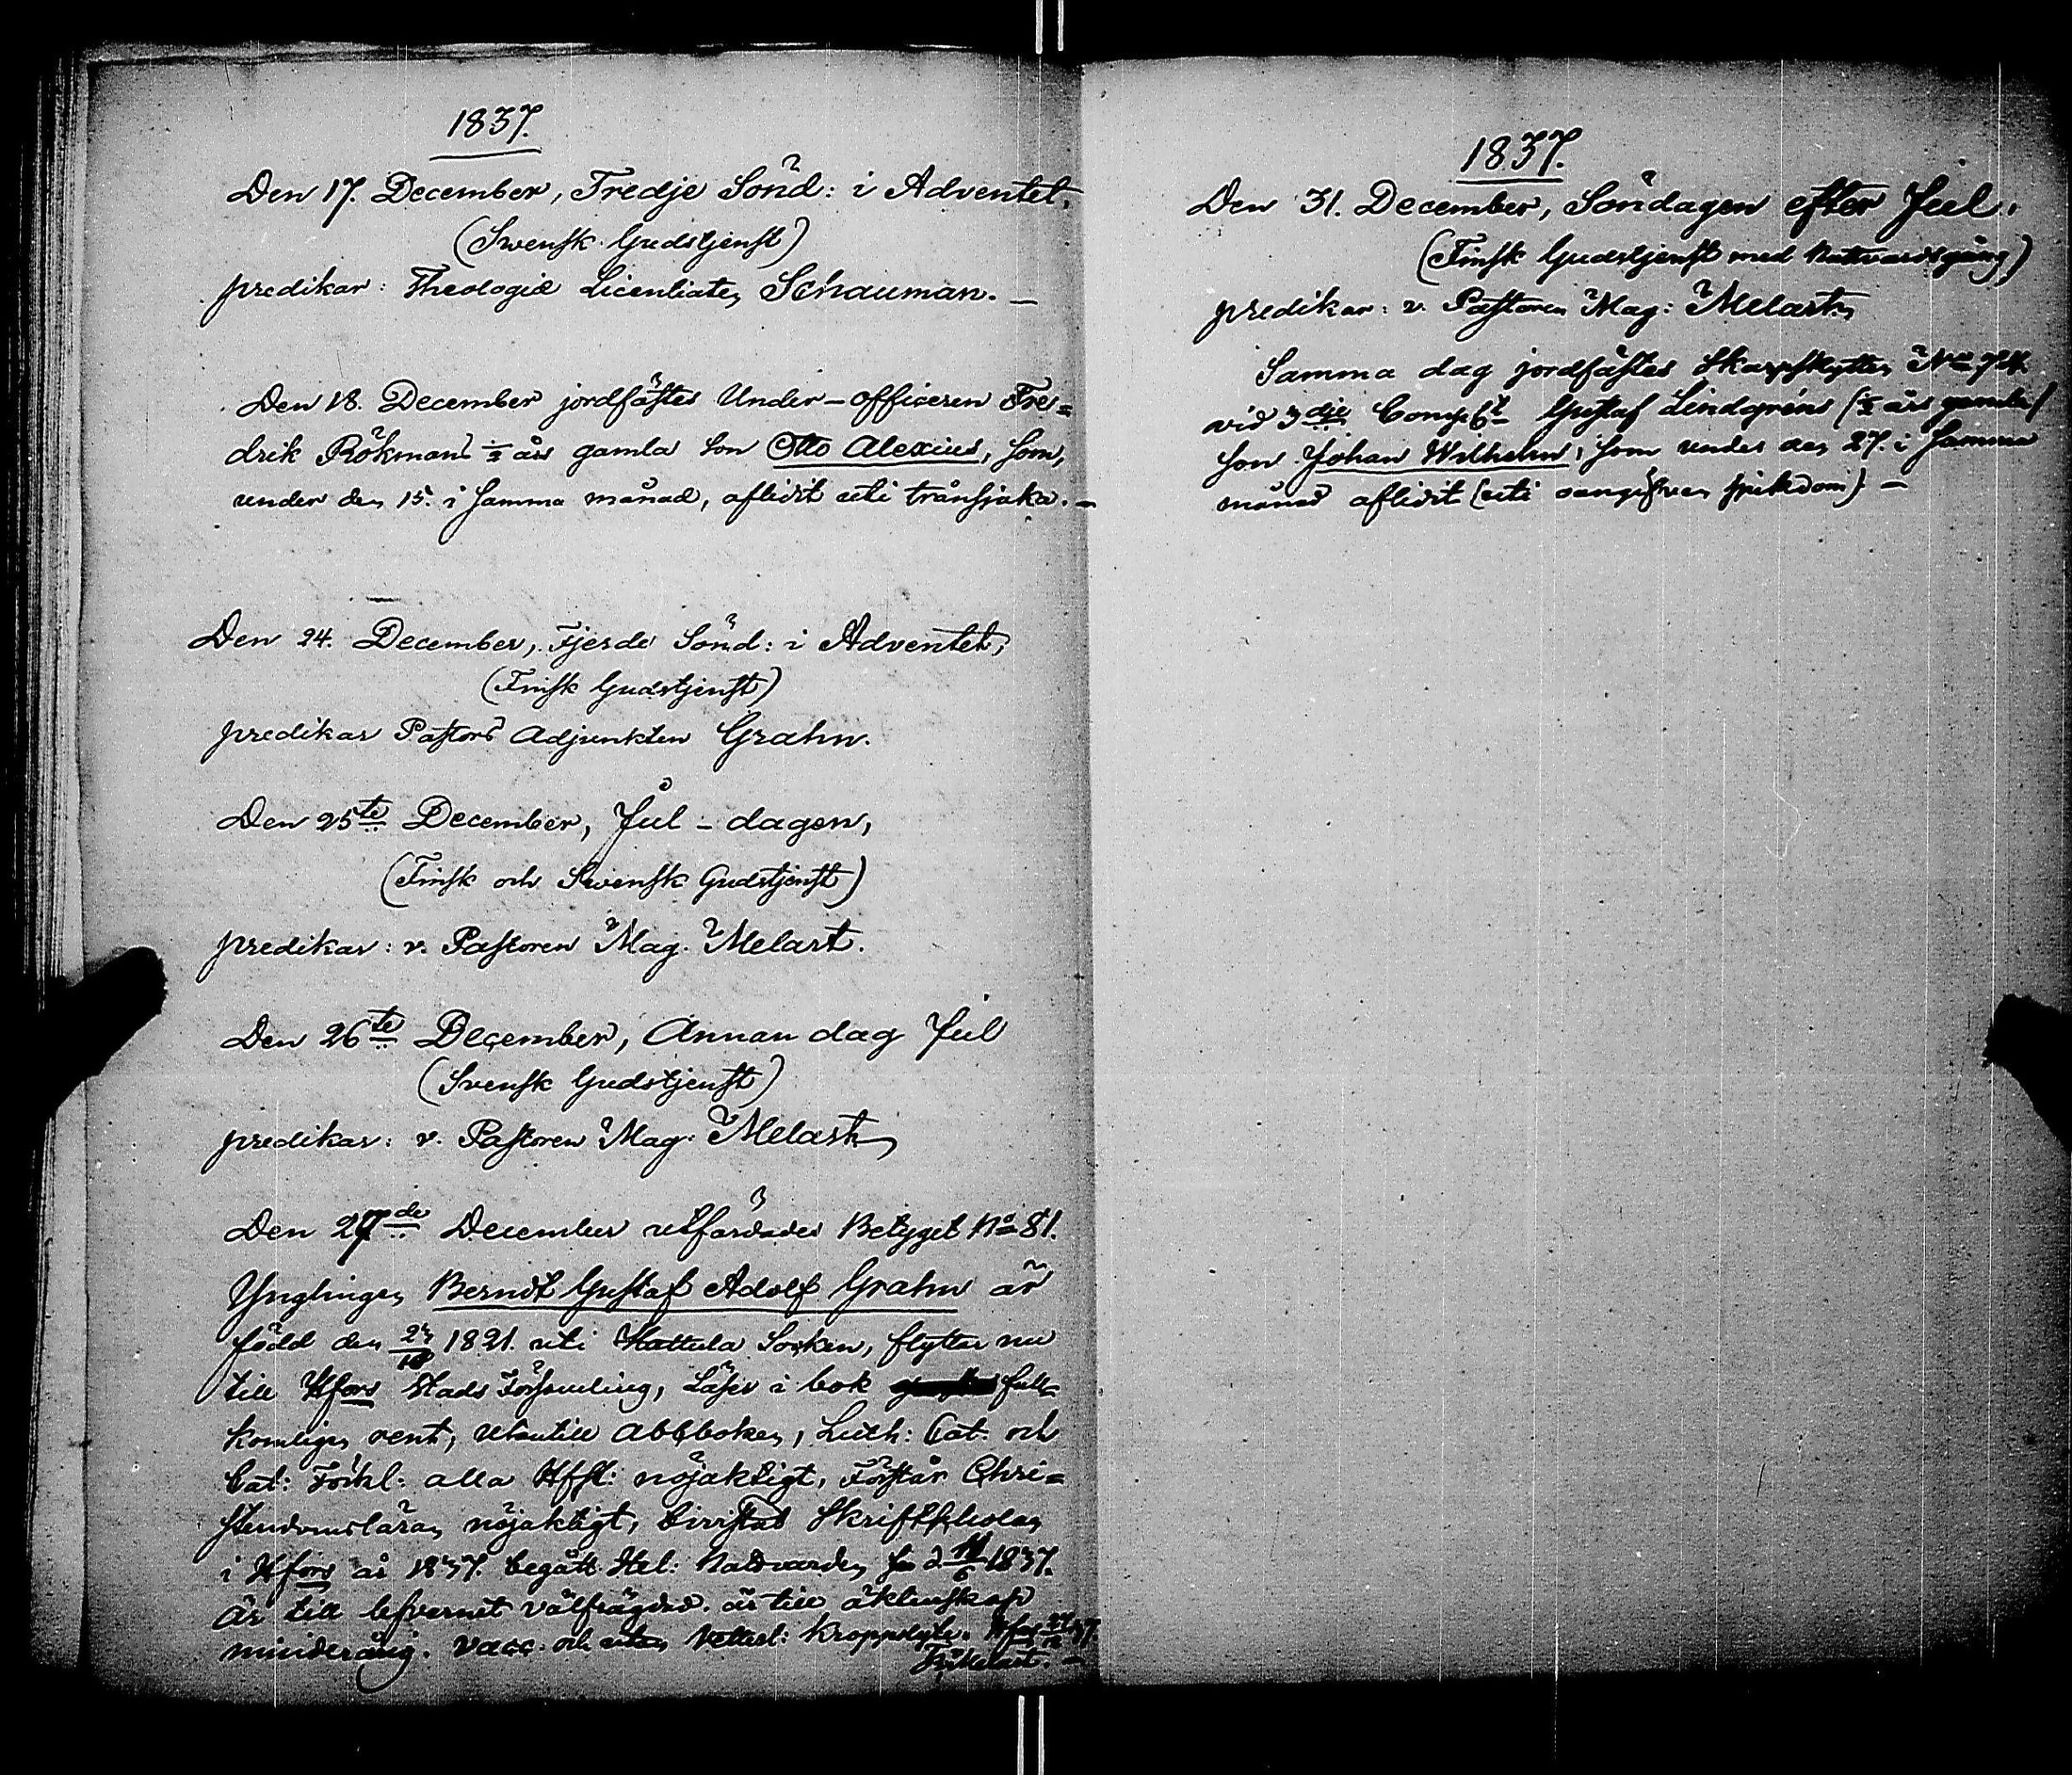 1837.
Den 17. December, Tredje Sönd: i Adventet,
(Swensk Gudstjenst)
predikar: Theologiæ Licentiaten Schauman. —
Den 18. December jordfästes Under-officeren Fre=
drik Rökmans ½ år gamla son Otto Alexius, som,
under den 15. i samma månad, aflidit uti trånsjuka. —
Den 24. December, Fjerde Sönd: i Adventet,
(Finsk Gudstjenst)
predikar Pastors Adjunkten Grahn.
Den 25te December, Jul-dagen,
(Finsk och Swensk Gudstjenst)
predikar: v. Pastoren Mag. Melart.
Den 26te December, Annan dag Jul
(Svensk Gudstjenst)
predikar: v. Pastoren Mag: Melart,
Den 27de December utfärdades Betyget No 81.
Ynglingen Berndt Gustaf Adolf Grahn är
född den 1821. uti Hattula Socken, flyttar nu
till Hfors Stads Församling, Läser i bok full-
komligen rent, utantill abcboken, Luth: Cat. och
Cat: Förkl: alla Hfst: nöjaktigt, Förstår Chri=
stendomsläran nöjaktigt, bivistat Skriftskolan
i Hfors år 1837. begått Hel: Nattvarden 1837.
är till lefvernet välfrägdad. är till äktenskap
minderårig. Vacc. och utan kroppslyte. Hfors 27/12 37.
1837.
Den 31. December, Söndagen efter Jul.
(Finsk Gudstjenst med Nattvardsgång)
predikar: v. Pastoren Mag: Melart,
Samma dag jordfästes Skarpskytten No 74.
vid 3dje Comp. Gustaf Lindgréns (½ års gamla)
son Johan Wilhelm, som under den 27. i samma
månad aflidit (uti oangifven sjukdom) —